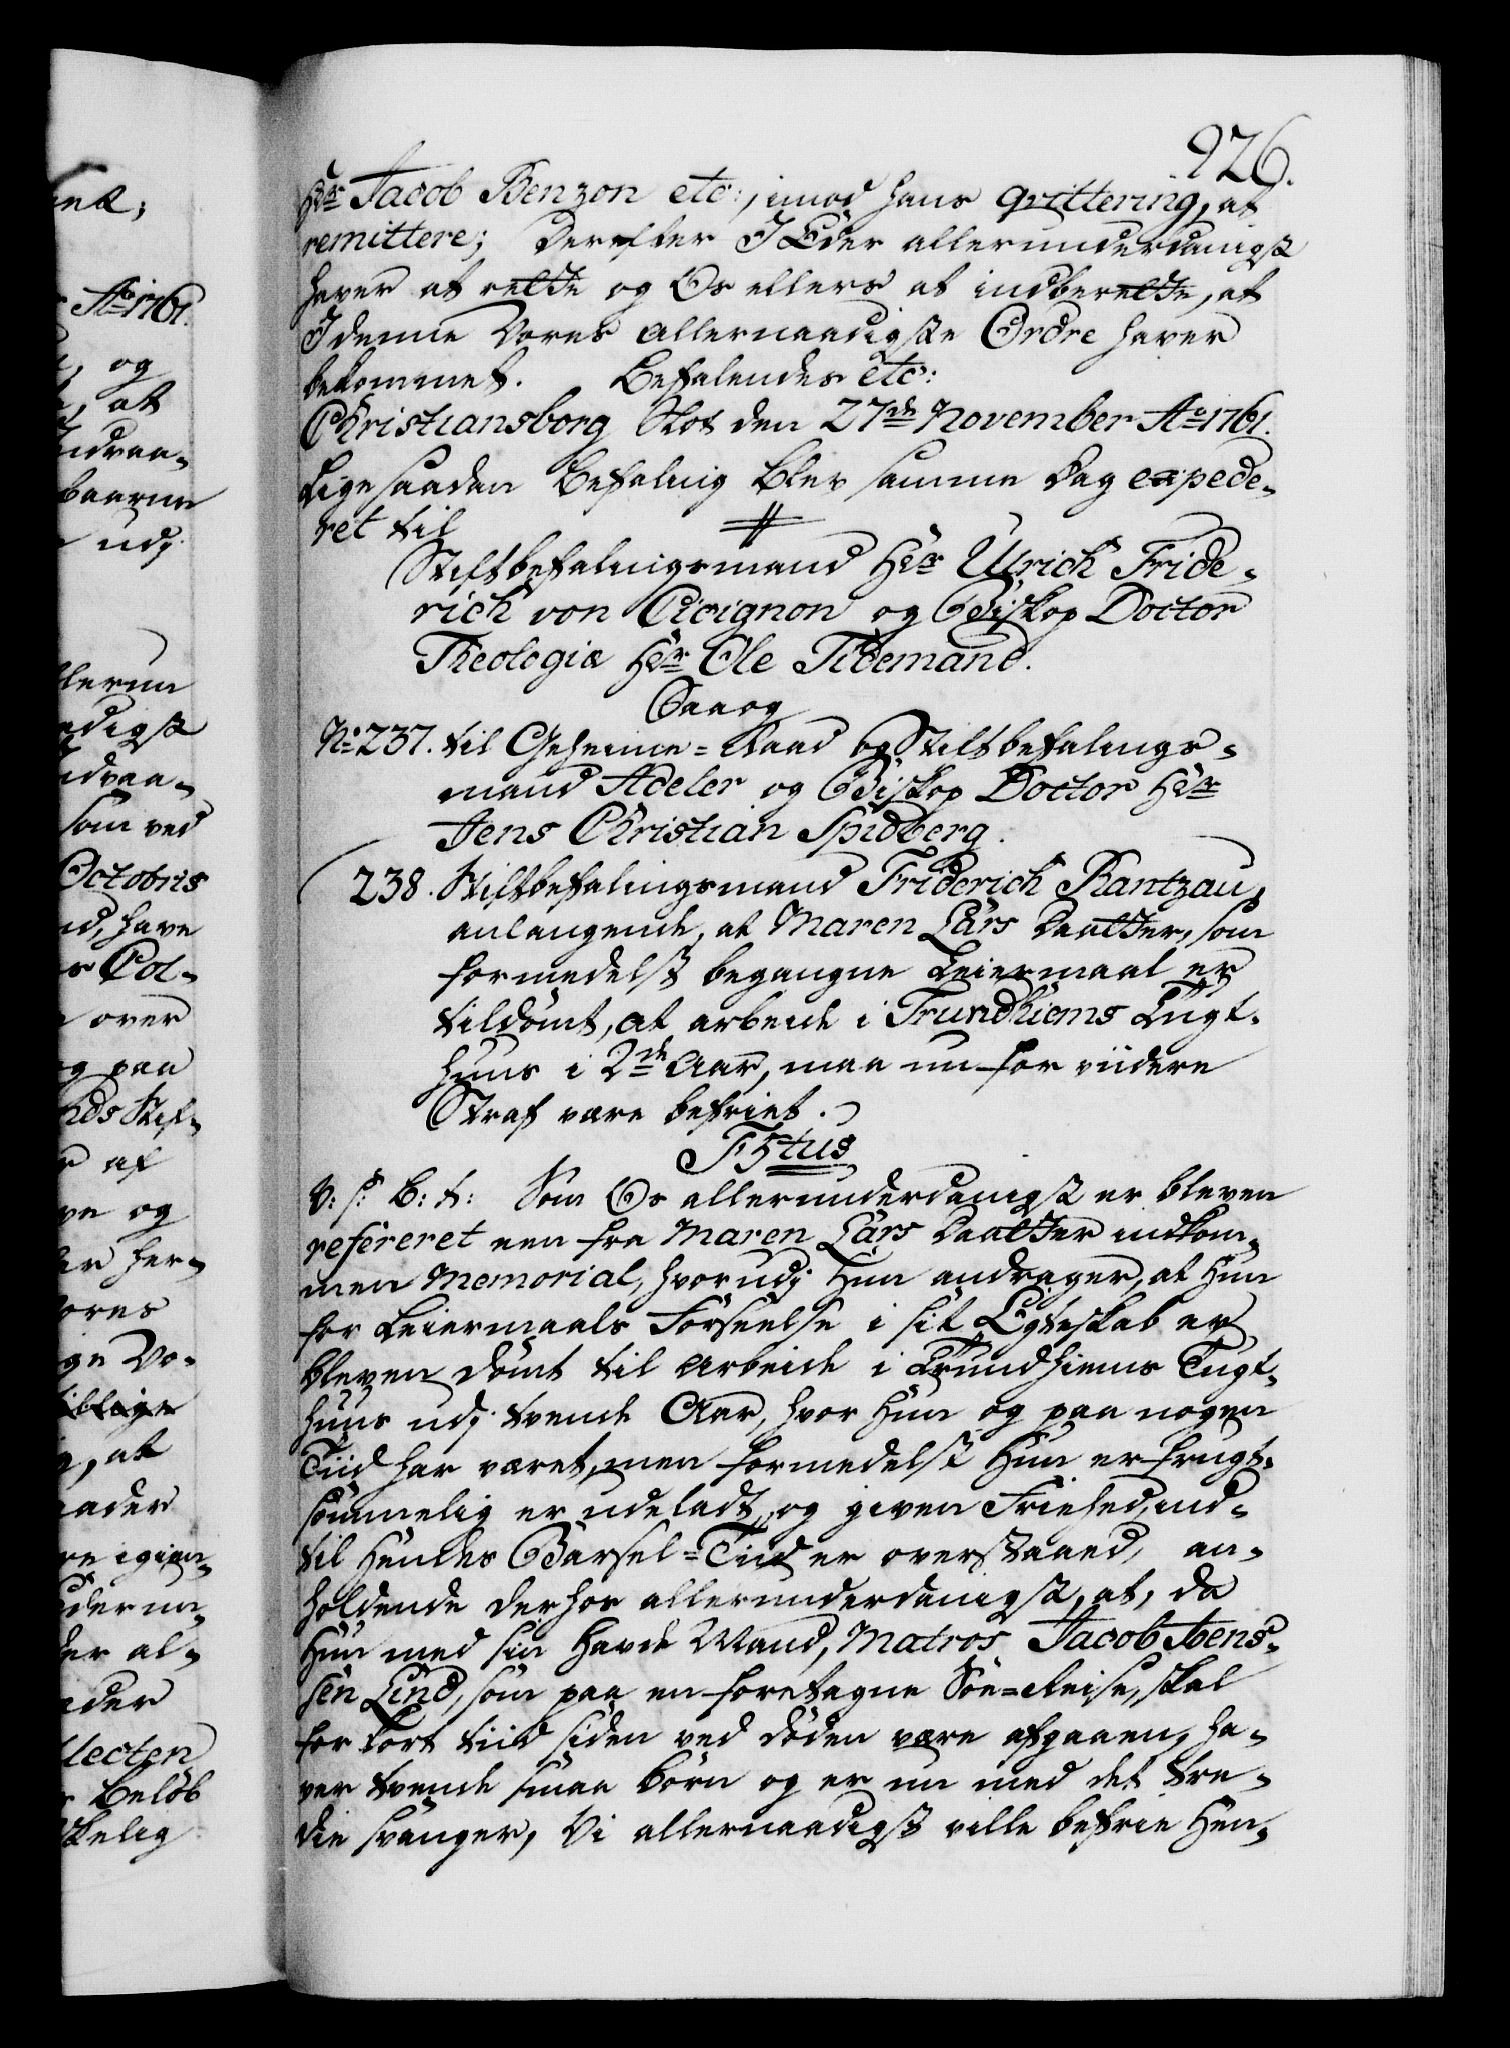 926.
Hr. Jacob Benzon etc:, imod hans qvittering, at
remittere; Derefter I Eder allerunderdanigst
haver at rette og Os ellers at indberette, at
I denne Vores allernaadigste Ordre haver
bekommet. Befalendes etc:
Christiansborg Slot den 27de November Ao 1761.
Lige saadan Befaling blev samme Dag expede-
ret til
Stiftbefalingsmand Hr. Ulrich Fride-
rich von Cicignon og Biskop Doctor
Theologiæ Hr. Ole Tidemand.
Saa og
No. 237. til Geheime-Raad og Stiftbefalings-
mand Adeler og Biskop Doctor Hr.
Jens Christian Spidberg.
238. Stiftbefalingsmand Friderich Rantzau,
anlangende, at Maren Lars Daatter, som
formedelst begangne Leiermaal er
tildömt, at arbeide i Trundhiems Tugt-
huus i 2de Aar, maa nu for viidere
Straf være befriet.
F5tus
V: s: B: t: Som Os allerunderdanigst er bleven
refereret een fra Maren Lars Daatter indkom-
men Memorial, hvorudj Hun andrager, at Hun
for Leiermaals Forseelse i sit Egteskab er
bleven dömt til Arbeide i Trundhiems Tugt-
huus udj tvende Aar, hvor Hun og paa nogen
Tiid har været, men formedelst Hun er frugt-
sommelig er udeladt, og given Friehed, ind-
til Hendes Barsel-Tiid er overstaaed, an-
holdende derhos allerunderdanigst, at, da
Hun med sin havde Mand, Matros Jacob Ibens-
sen Lind, som paa en foretagne Söe-Reise, skal
for kort tiid siden ved döden være afgaaen, ha-
ver tvende smaa Börn og er nu med det tre-
die svanger, Vi allernaadigst ville befrie Hen-